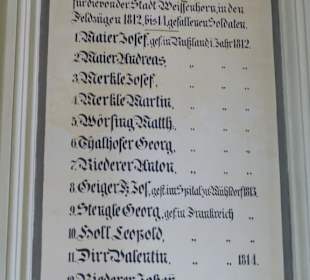 für die von der Stadt Weissenhorn, in den
Feldzügen 1812, bis 14 gefallenen Soldaten.
1. Maier Josef, gef. in Rußland i. Jahr 1812.
2. Maier Andreas, „ „ „
3. Merkle Josef, „ „ „
4. Merkle Martin, „ „ „
5. Wörsing Matth, „ „ „
6. Thalhofer Georg, „ „ „
7. Riederer Anton, „ „ „
8. Geiger Jos, gest. im Spital zu Mühldorf 1813.
9. Stengle Georg, gef. in Frankreich „
10. Holl Leopold, „ „
11. Dirr Valentin, „ „ 1814.
12. Riederer Johan